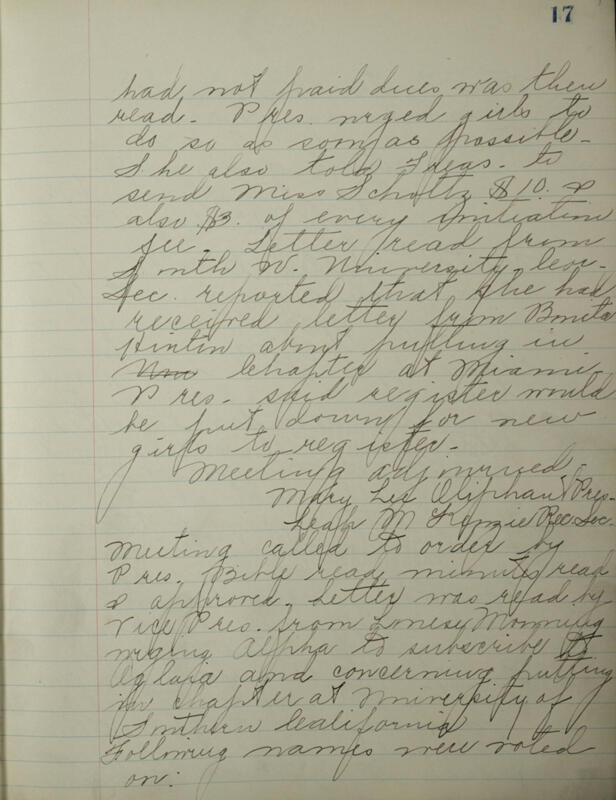 17
had not paid dues was then
read. Pres. urged girls to
do so as soon as possible.
She also told Treas. to
send Miss Scholtz $10. &
also $3. of every initiation
fee. Letter read from
South W. University. Cor.
Sec. reported that she had
received letter from Bonita
Hinton about putting in
Chapter at Miami
Pres. said register would
be put down for new
girls to register.
Meeting adjourned.
Mary Lee Oliphant Pres.
Leah McKenzie Rec. Sec.
Meeting called to order by
Pres. Bible read, minutes read
& approved. Letter was read by
Vice Pres. from Monning
urging Alpha to subscribe to
Aglaia and concerning putting
in chapter at University of
Southern California
Following names were voted
on: